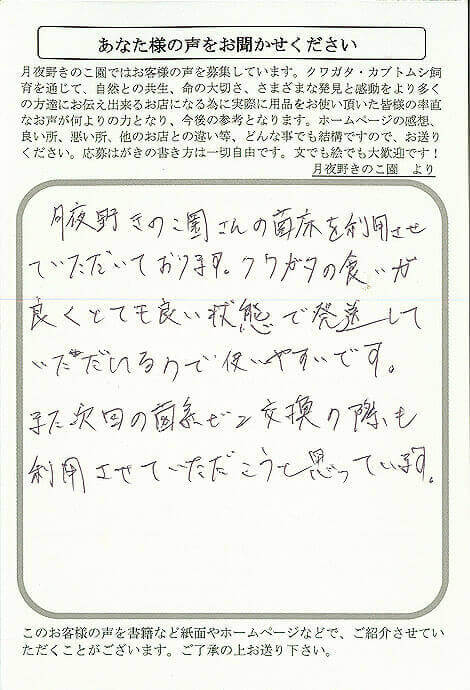 あなた様の声をお聞かせください
月夜野きのこ園ではお客様の声を募集しています。クワガタ・カブトムシ飼
育を通じて、自然との共生、命の大切さ、さまざまな発見と感動をより多く
の方達にお伝え出来るお店になる為に実際に用品をお使い頂いた皆様の率直
なお声が何よりの力となり、今後の参考となります。ホームページの感想、
良い所、悪い所、他のお店との違い等、どんな事でも結構ですので、お送り
ください。応募はがきの書き方は一切自由です。文でも絵でも大歓迎です！
月夜野きのこ園　より
月夜野きのこ園さんの菌床を利用させ
ていただいております。クワガタの食いが
良くとても良い状態で発送して
いただいているので使いやすいです。
また次回の菌糸ビン交換の際も
利用させていただこうと思っています。
このお客様の声を書籍など紙面やホームページなどで、ご紹介させてい
ただくことがございます。ご了承の上お送り下さい。